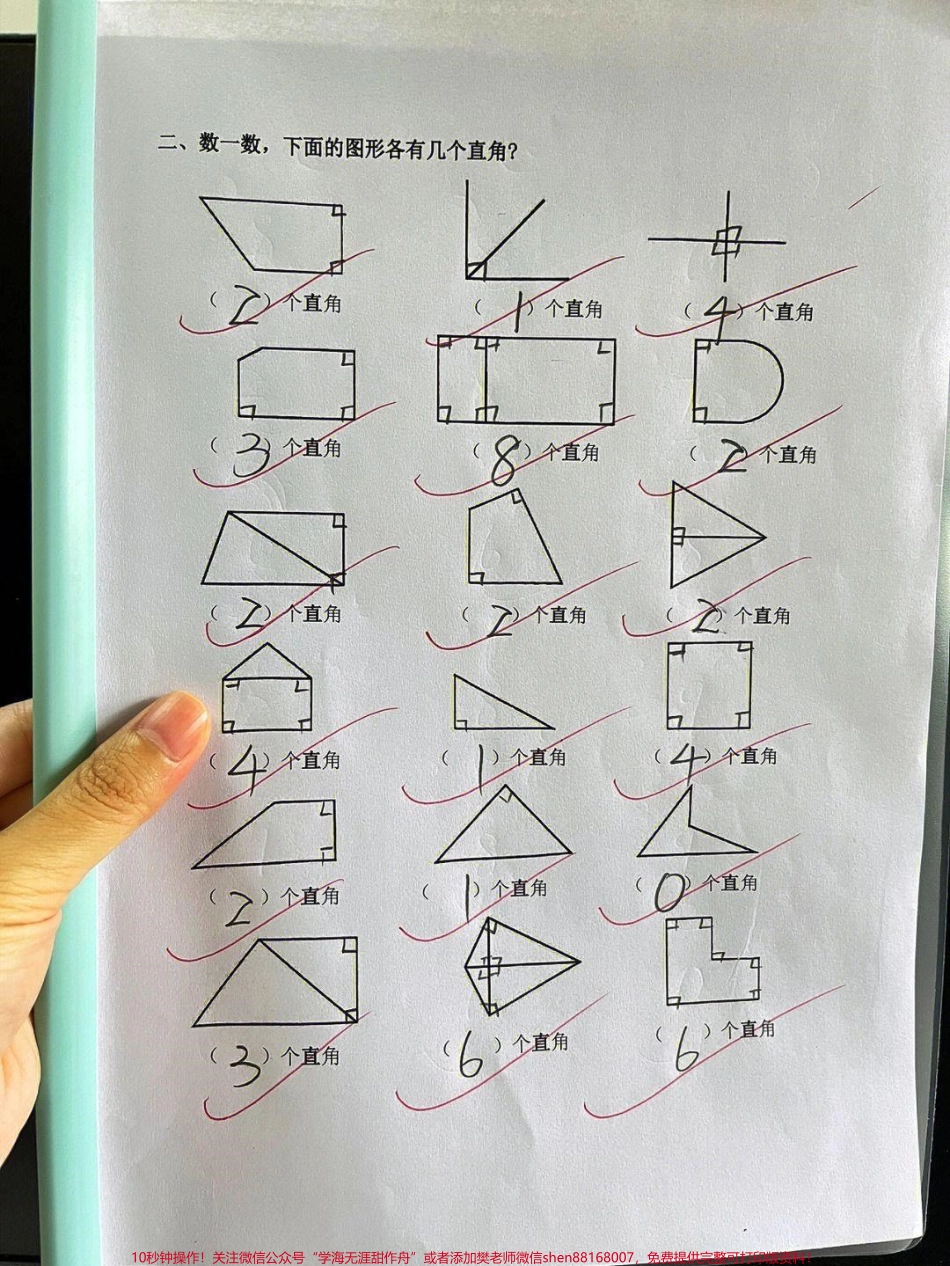 二、数一数，下面的图形各有几个直角？
（2）个直角 （1）个直角 （4）个直角
（3）个直角 （8）个直角 （2）个直角
（2）个直角 （2）个直角 （2）个直角
（4）个直角 （1）个直角 （4）个直角
（2）个直角 （1）个直角 （0）个直角
（3）个直角 （6）个直角 （6）个直角
10秒钟操作！关注微信公众号“学海无涯甜作舟”或者添加樊老师微信shen88168007，免费提供完整可打印版资料！